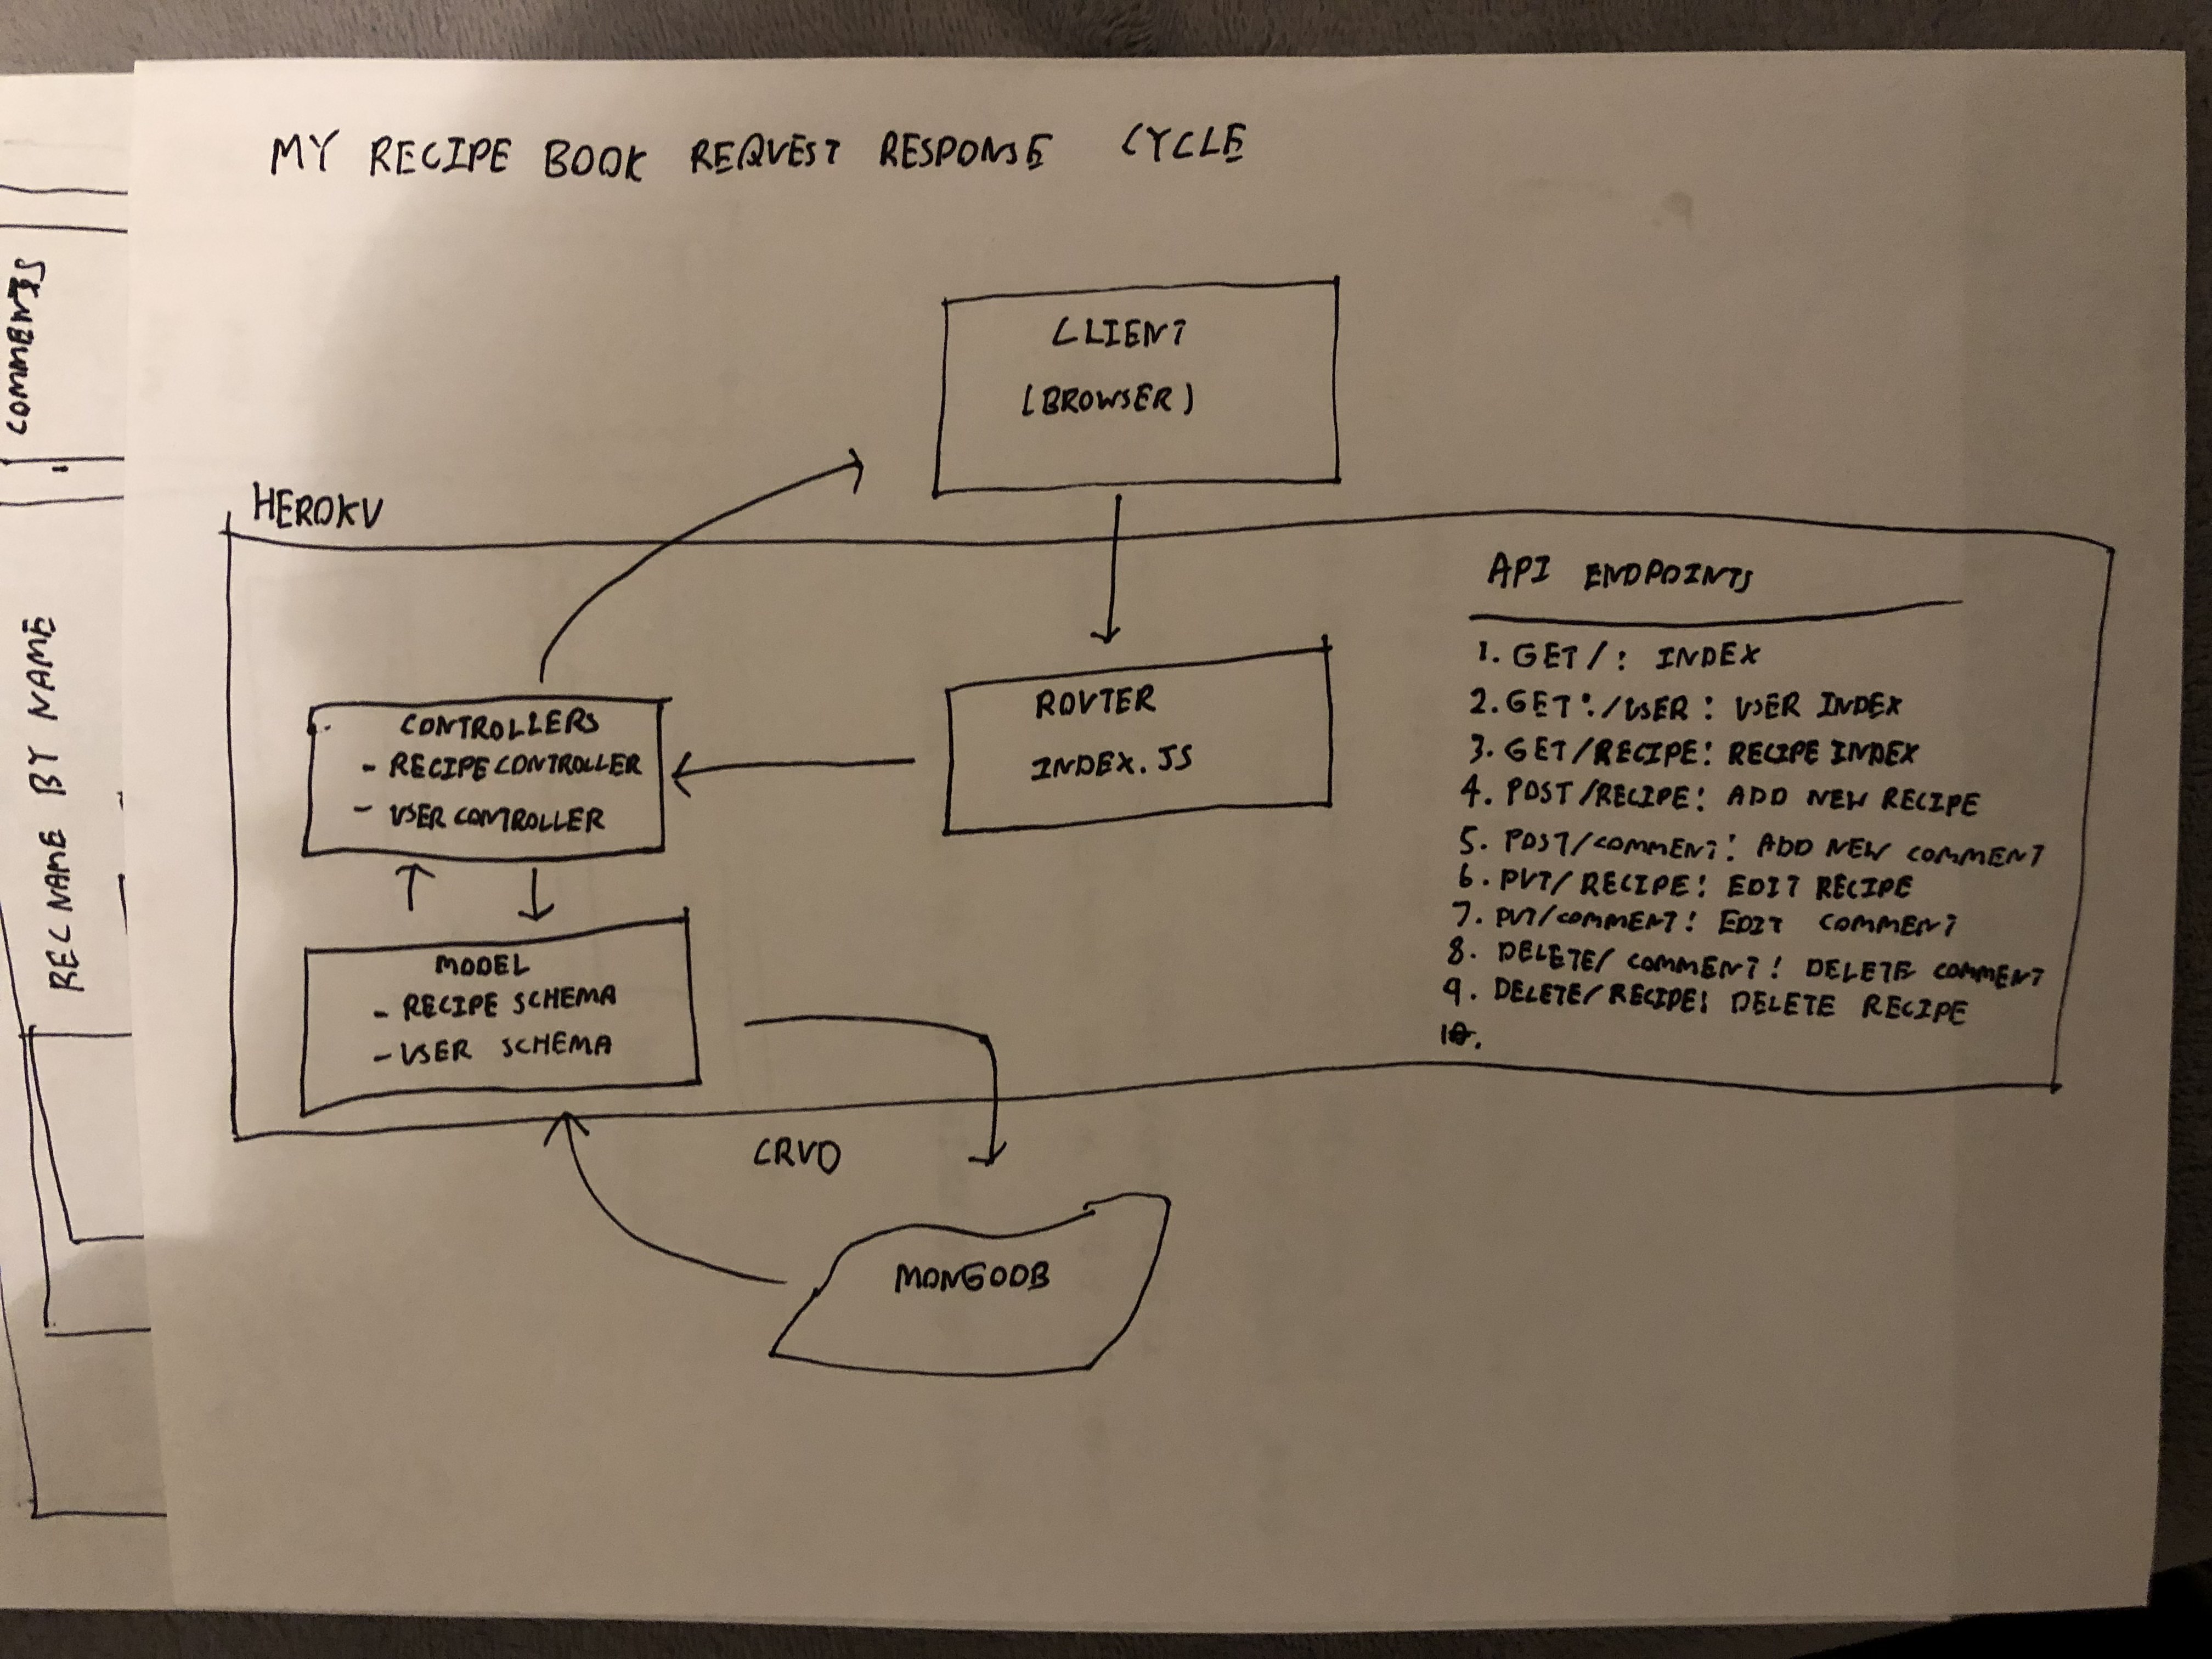 REC NAME BY NAME
COMMENTS
MY RECIPE BOOK REQUEST RESPONSE CYCLE
HEROKU
CLIENT
(BROWSER)
CONTROLLERS
- RECIPE CONTROLLER
- USER CONTROLLER
ROUTER
INDEX.JS
MODEL
- RECIPE SCHEMA
- USER SCHEMA
CRUD
MONGODB
API ENDPOINTS
1. GET/: INDEX
2. GET:/USER: USER INDEX
3. GET/RECIPE: RECIPE INDEX
4. POST/RECIPE: ADD NEW RECIPE
5. POST/COMMENT: ADD NEW COMMENT
6. PUT/RECIPE: EDIT RECIPE
7. PUT/COMMENT: EDIT COMMENT
8. DELETE/COMMENT: DELETE COMMENT
9. DELETE/RECIPE: DELETE RECIPE
10.